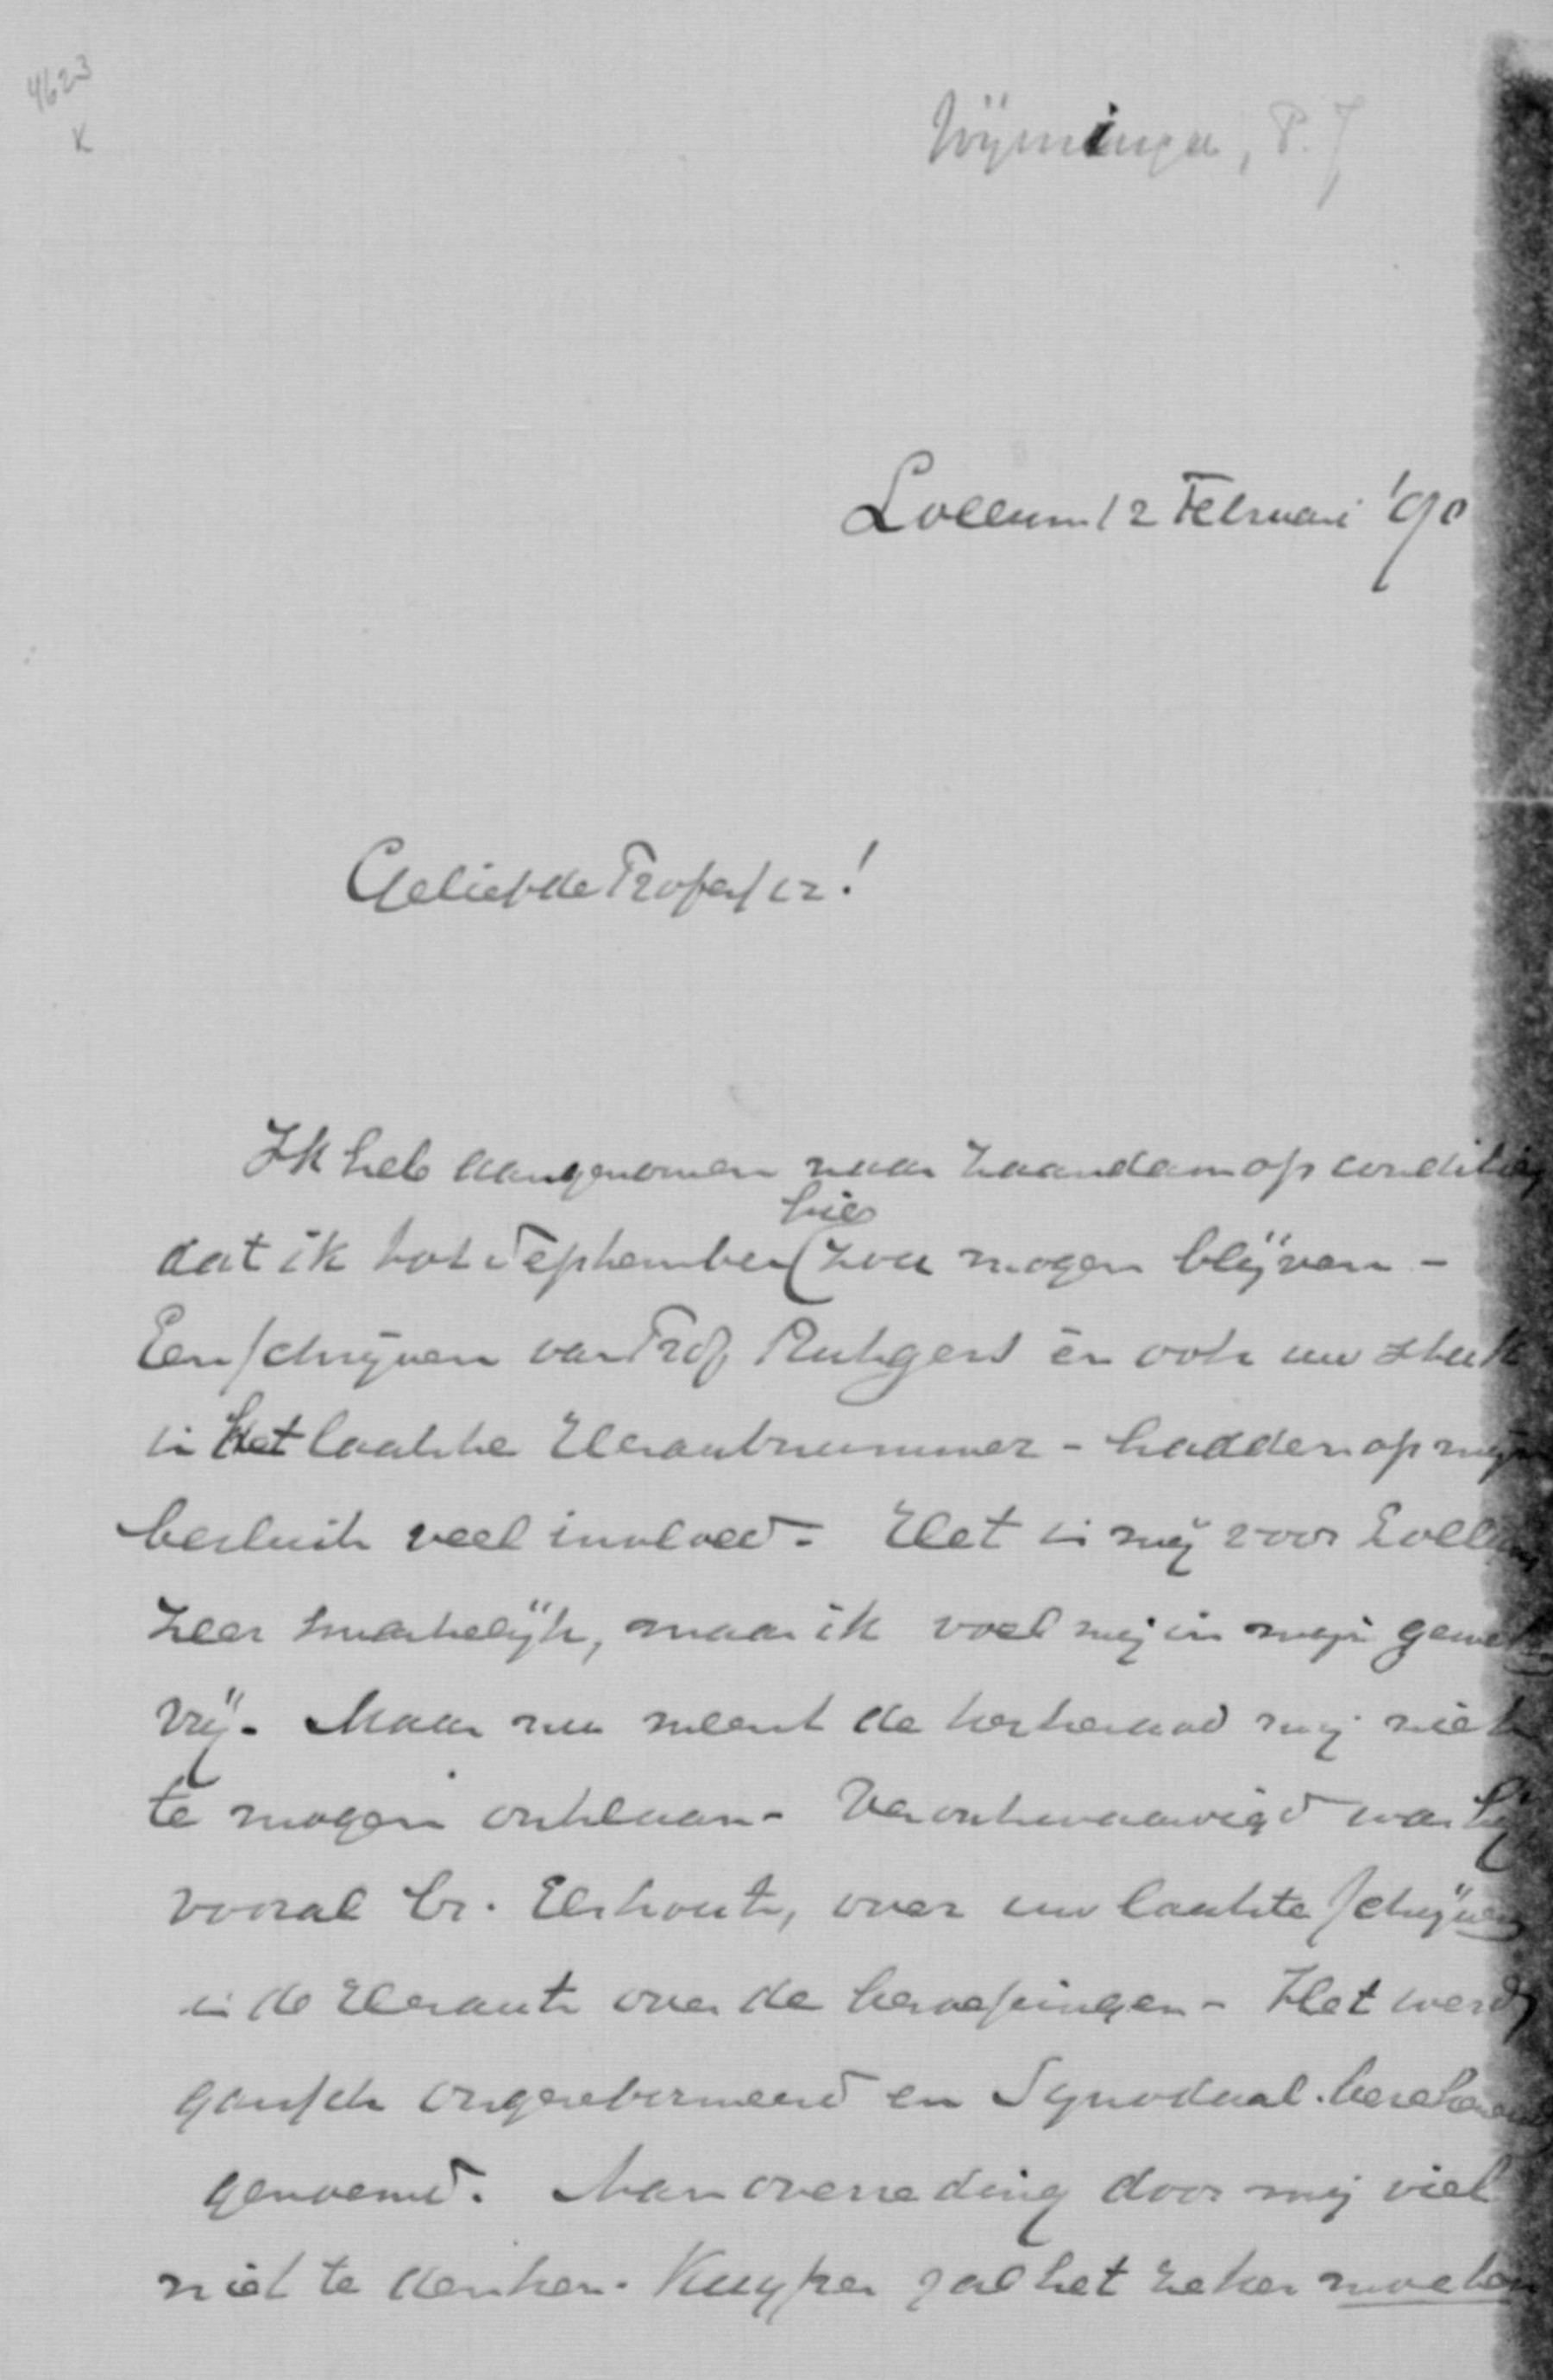 4623
K
Wijminga, P. J
Lollum 12 Februari '90
Geliefde Professor!
Ik heb aangenomen naar Zaandam op conditie
dat ik tot September hier zou mogen blijven -
Een schrijven van Prof Rutgers èn ook uw stuk
in het laatste Herautnummer - hadden op mijn
besluit veel invloed - Het is mij voor Lollum
zeer smartelijk, maar ik voel mij in mijn geweten
vrij. Maar nu meent de kerkeraad mij niet
te mogen ontslaan - Verontwaardigd was hij
vooral br. Elshout, over uw laatste schrijven
in de Heraut over de beroepingen - Het werd
gansch ongereformeerd en Synodaal
genoemd. Aan overreding door mij viel
niet te denken. Kuyper zal het zeker moeten